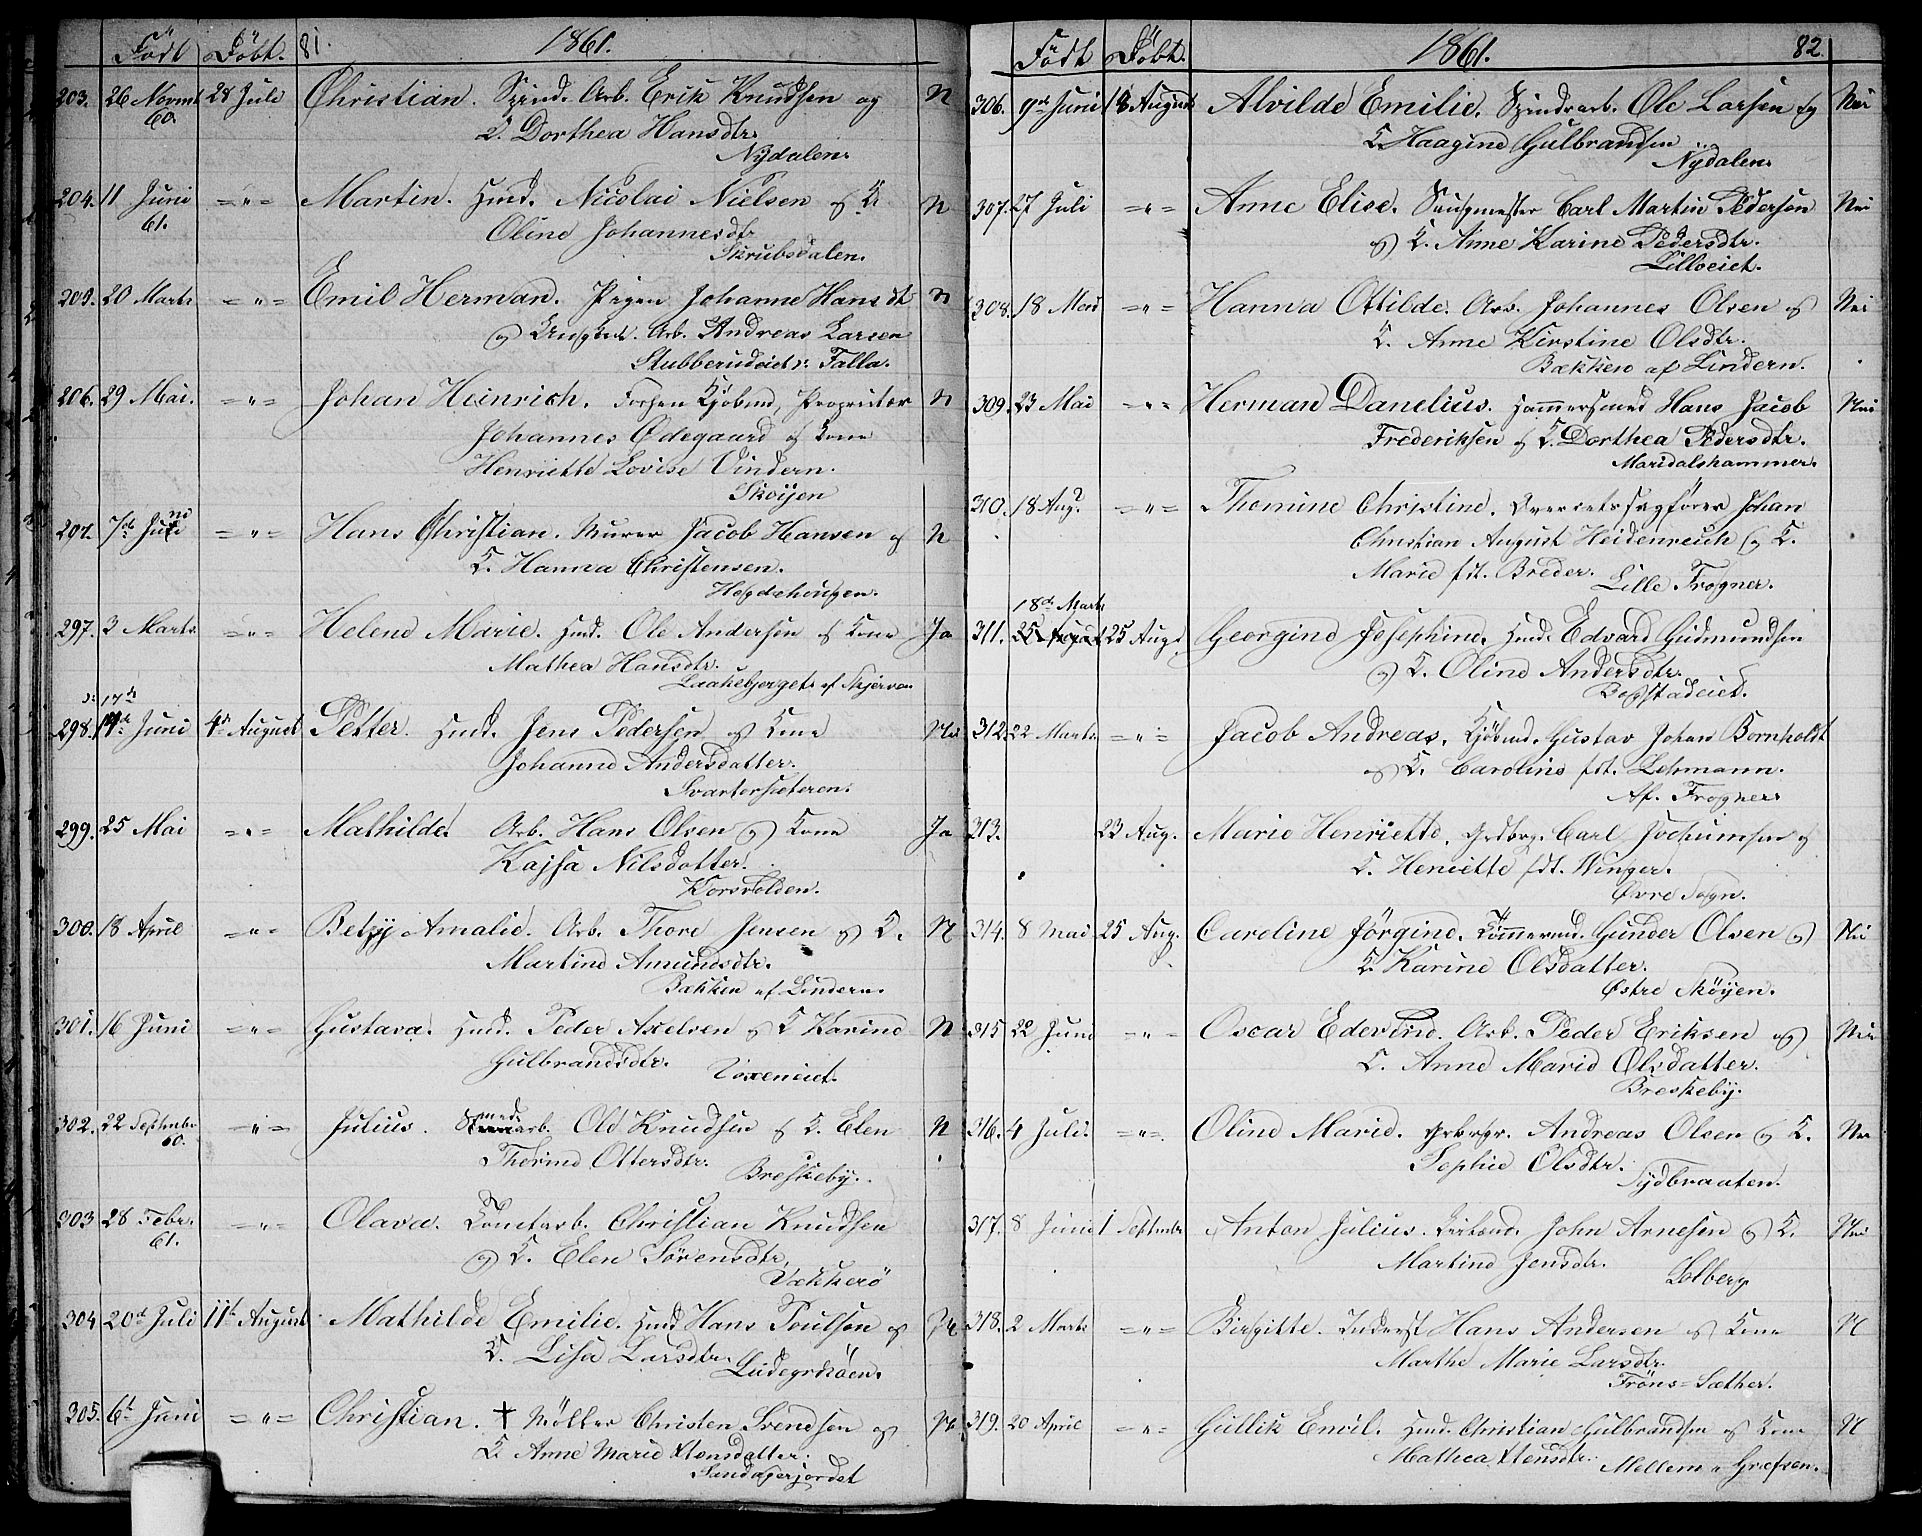 Födt Döbt. 81. 1861.
203. 26 Novmb 60. 28 Juli Christian. Spind. Arb. Erik Knudsen og N
K. Dorthea Hansdtr.
Nydalen.
204. 11 Juni 61. -"- Martin. Hmd. Nicolai Nielsen og K. N
Oline Johannesdtr
Skrubsdalen.
205. 20 Marts -"- Emil Herman. Pigen Johanne Hansdt N
og Ungkarl. Arb. Andreas Larsen
Stubberudeiet v: Falla.
206. 29 Mai. -"- Johan Heinrich. Forhen Kjöbmd, Proprietær N
Johannes Ødegaard og Kone
Henriette Lovise Vindern.
Skoijen
297. 7de Juni -"- Hans Christian. Murer Jacob Hansen og N
K. Hanna Christensen.
Hegdehougen.
297. 3 Marts. -"- Helene Marie. Hmd. Ole Andersen og Kone Ja
Mathea Hansdtr.
Laakebjerget af Skjerven
17de
298. Juni 4de August Petter. Hmd. Jens Pedersen og Kone
Johanne Andersdatter.
Svartorsæteren.
299. 25 Mai -"- Mathilde. Arb. Hans Olsen og Kone Ja
Kajsa Nilsdatter.
Korsvolden.
300. 18 April -"- Betzy Amalie. Arb. Thore Jensen og K. N
Martine Amundsdtr.
Bakken af Lindern.
301. 16 Juni -"- Gustava. Hmd. Peder Axelsen og K Karine N
Gulbrandsdtr. Voxeneiet.
302. 22 Septembr 60. -"- Julius. Smedarb. Ole Knudsen og K. Elen N
Thorine Ottersdtr. Breskeby.
303 28 Febr. 61. -"- Olava. Tomtarb. Christian Knudsen
og K. Elen Sörensdtr,
Vækkerö
304 20de Juli 11te August Mathilde Emilie. Hmd Hans Poulsen og N
K. Lisa Larsdtr.
305. 6te Juni -"- Christian. † Möller Christen Svendsen og N
K. Anne Marie Hansdatter.
Sandagerjordet
Födt Döbt. 1861. 82.
306. 9de Juni 18 August Alvilde Emilie. Spindearb. Ole Larsen og Nei
K. Haagine Gulbrandsen
Nydalen.
307. 27 Juli -"- Anne Elise. Saugmester Carl Martin Pederson Nei
og K. Anne Karine Pedersdtr.
Lilloeiet.
308. 18 -"- Hanna Ottilde. Arb. Johannes Olsen og Nei
K. Anne Kirstine Olsdtr.
Bækken af Lindern.
309. 23 Mai -"- Herman Danelius. Hammersmed Hans Jacob Nei
Frederiksen og K. Dorthea Pedersdtr.
Maridalshammer.
310. 18 Aug? -"- Thomine Christine. Overretssagförer Johan
Christian August Heidenreich og K.
Marie fdt. Breder. Lille Frogner.
18de Marts
311. 25 Augt Georgine Josephine. Hmd. Edvard Gudmundsen
og K. Oline Andersdtr.
Bogstadeiet.
312. 22 Marts -"- Jacob Andreas. Kjöbmd. Gustav Johan Bornholdt
og K. Caroline fdt. Lehmann.
Af. Frogner.
313. 23 Aug. Marie Henriette, Grdbrg. Carl Jochumsen og
K. Henriette fdt. Winger.
Øvre Sogn.
314. 8 Mai 25 Aug. Caroline Jörgine. Tömmermd. Gunder Olsen og Nei
K. Karine Olsdatter.
Østre Sköyen.
315 22 Juni -"- Oscar Edevine. Arb. Peder Eriksen og Nei
K. Anne Marie Olsdatter.
Breskeby.
316. 4 Juli. -"- Oline Marie. Andreas Olsen og K. Nei
Sophie Olsdtr.
Sydbraaten.
317. 8 Juni 1 Septembr Anton Julius. John Arnesen og K. Nei
Martine Jensdtr.
Solberg
318. 2 Marts -"- Birgitte. Inderst Hans Andersen og Kone N
Marthe Marie Larsdtr.
Tröns=Sæther.
319. 20 April -"- Gullik Emil. Hmd. Christian Gulbrandsen og Kone N
Mathea Hansdtr.
Mellem Græfsen.